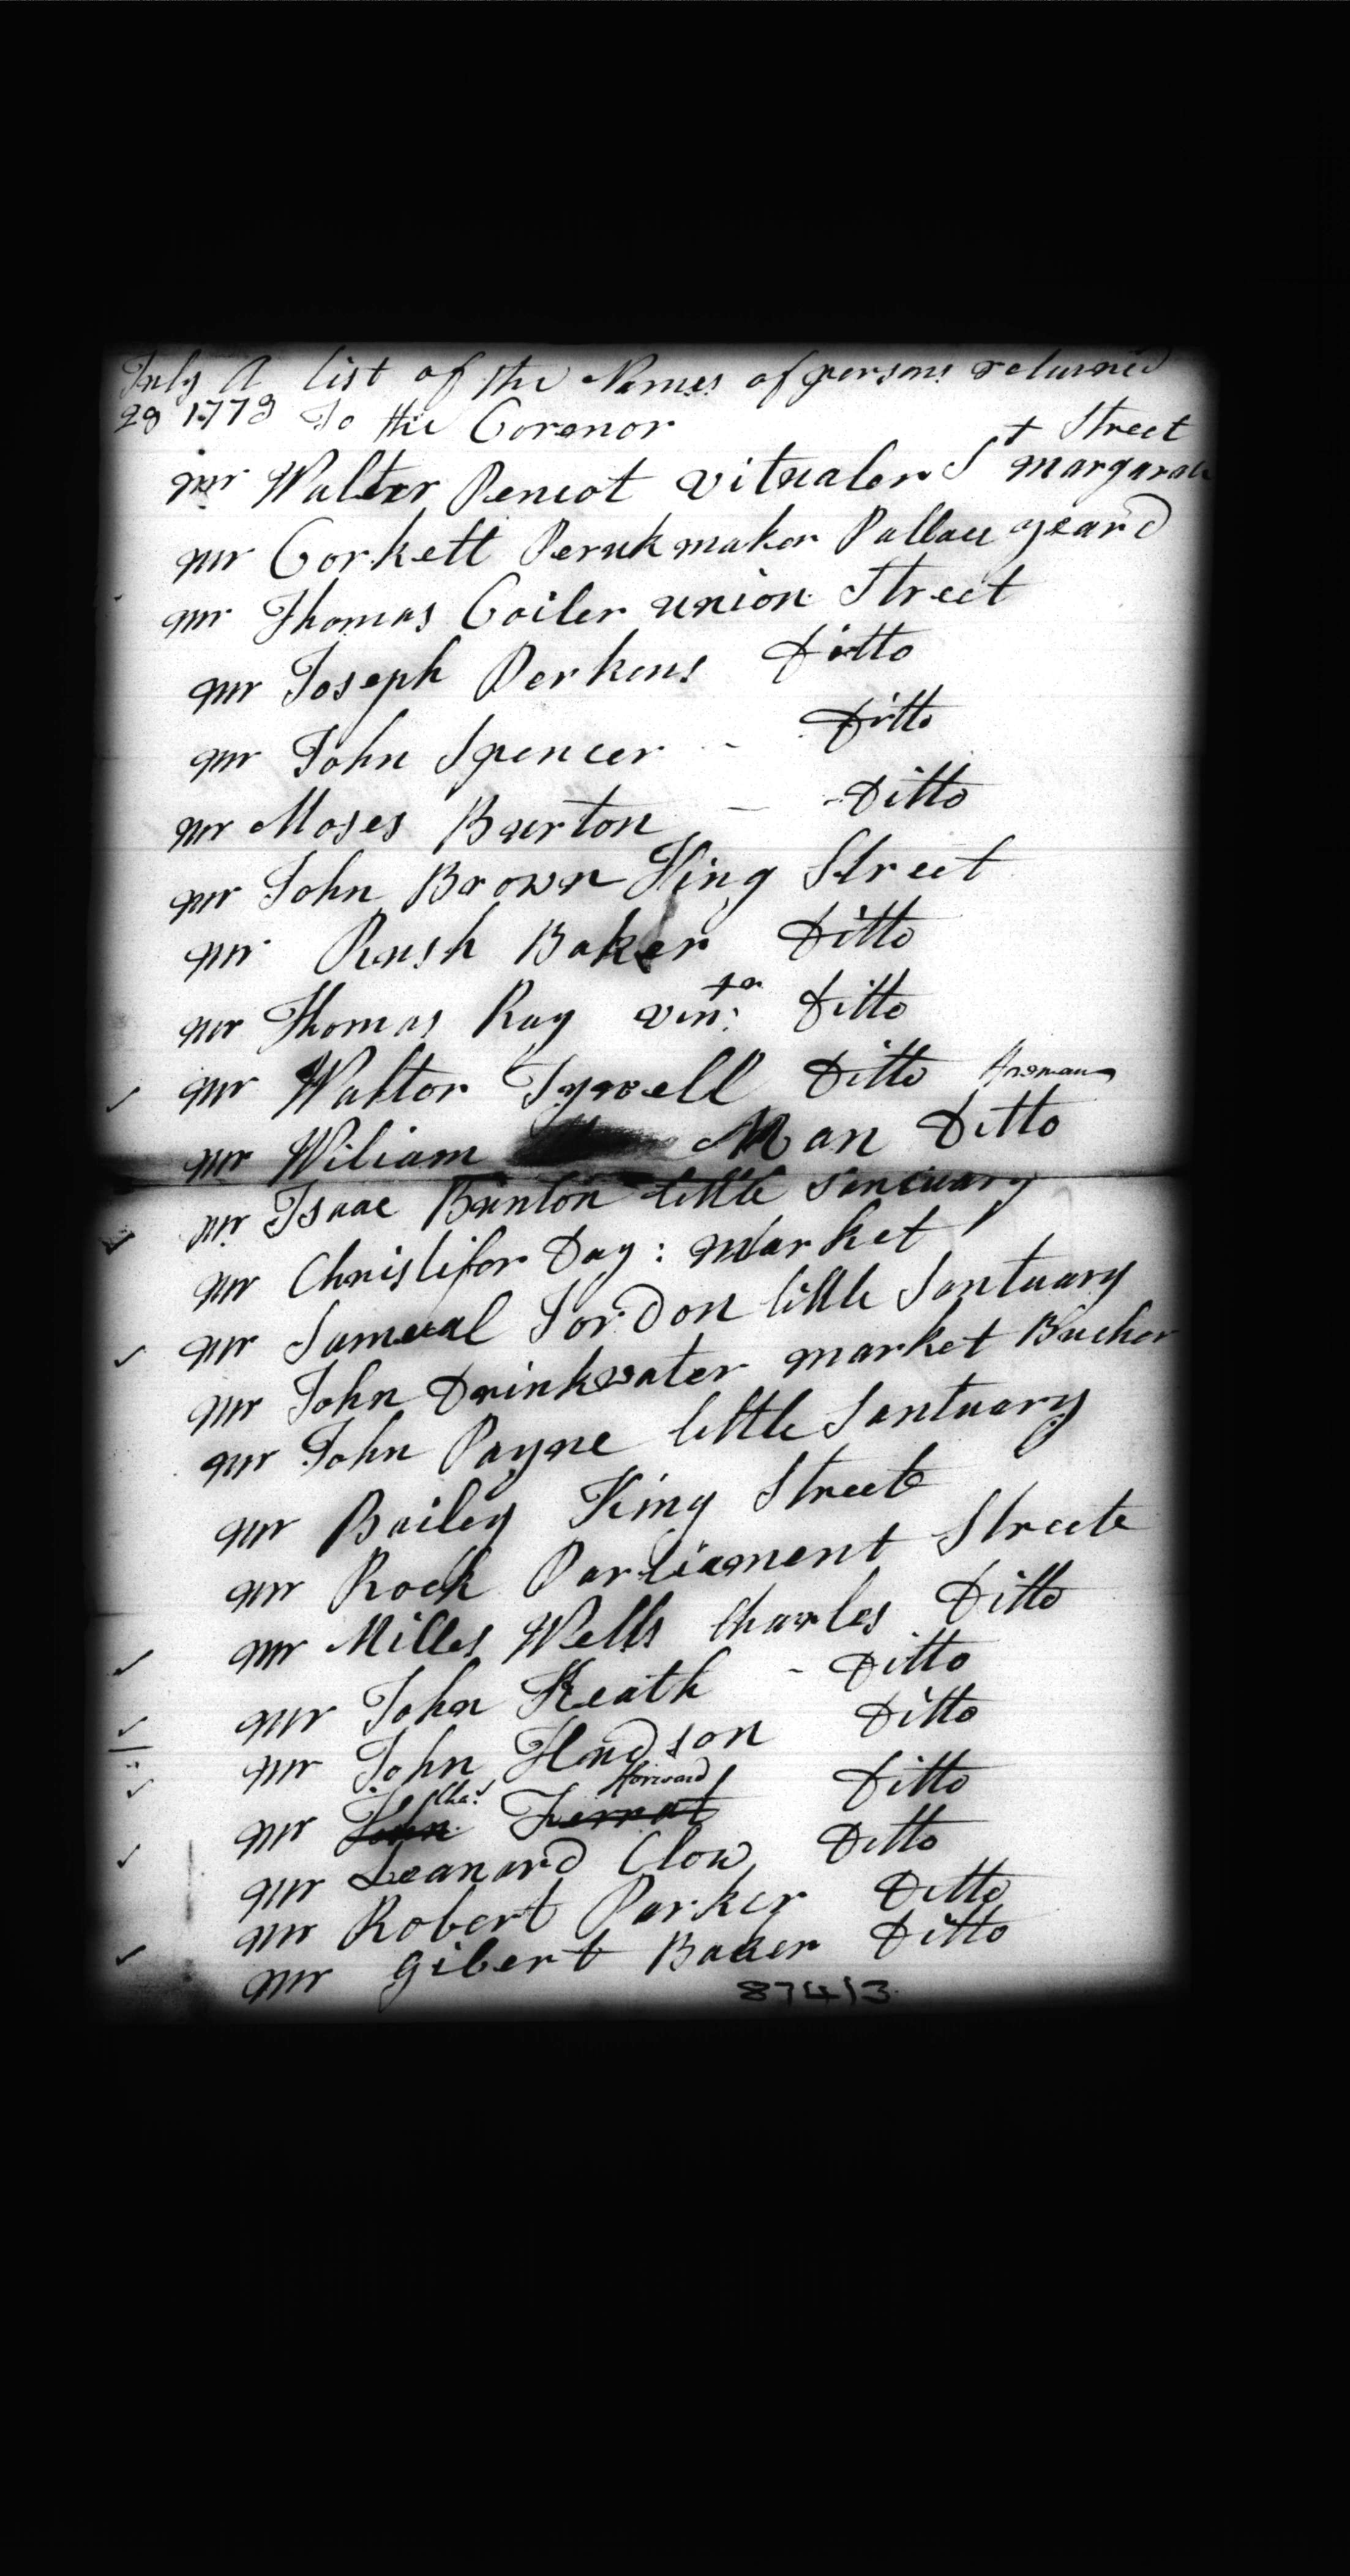 July A list of the Names of persons returned
29 1773 To the Coroner
mr Walter Pencot vitualer St margarate Street
mr Corkett Peruk maker Pallace yeard
mr Thomas Coiler union Street
mr Joseph Perkens Ditto
mr John Spencer - Ditto
mr Moses Burton - Ditto
mr John Brown King Street
mr Rush Baker Ditto
mr Thomas Ray vintr Ditto
mr Waltor Tyrrell Ditto
mr Wiliam Man Ditto
mr Isaac Bunton little sanctuary
mr Christifor Day: market
mr Sameual Jordon little Santuary
mr John Drinkwater market Bucher
mr John Payne little Santuary
mr Bailey King Streete
mr Rock Parliament Streete
mr Milles Wells Charles Ditto
mr John Keath - Ditto
mr John Hudson Ditto
mr John Chas. Ferrat Horward Ditto
mr Leanard Clow Ditto
mr Robert Parker Ditto
mr gilbert Baker Ditto
87413